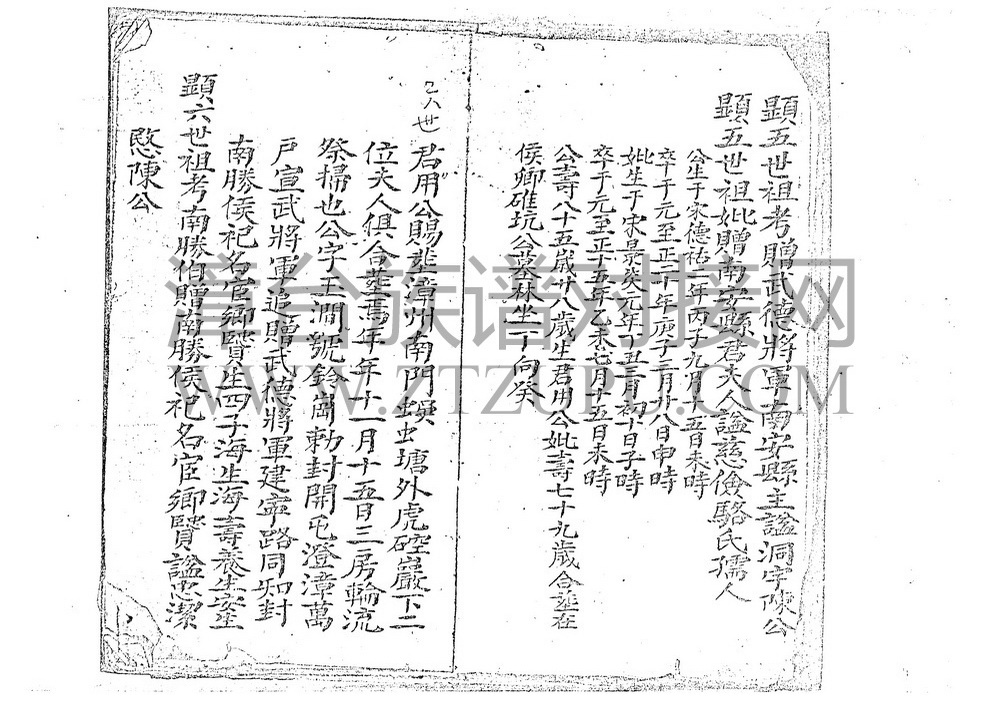 顯五世祖考贈武德將軍南安縣主諡洞宇陳公
顯五世祖妣贈南安縣君夫人諡慈儉駱氏孺人
公生于宋德祐二年丙子九月十五日未時
卒于元至正二十年庚子二月廿八日申時
妣生于宋景炎元年丁丑三月初十日子時
卒于元至正十五年乙未七月十五日未時
公壽八十五歲廿八歲生君用公妣壽七十九歲合葬在
侯卿碓坑公墓林坐丁向癸
乙六世
君用公賜葬漳州南門塘外虎硿巖下二
位夫人俱合葬焉年年十一月十五日三房輪流
祭掃也公字玉澗號鈴崗勅封開屯漳萬
戶宣武將軍追贈武德將軍建寧路同知封
南勝侯祀名宦鄉賢生四子海生海壽養生安生
顯六世祖考南勝伯贈南勝侯祀名宦鄉賢諡忠潔
愍陳公
漳台族谱对接网
WWW.ZTZUPU.COM